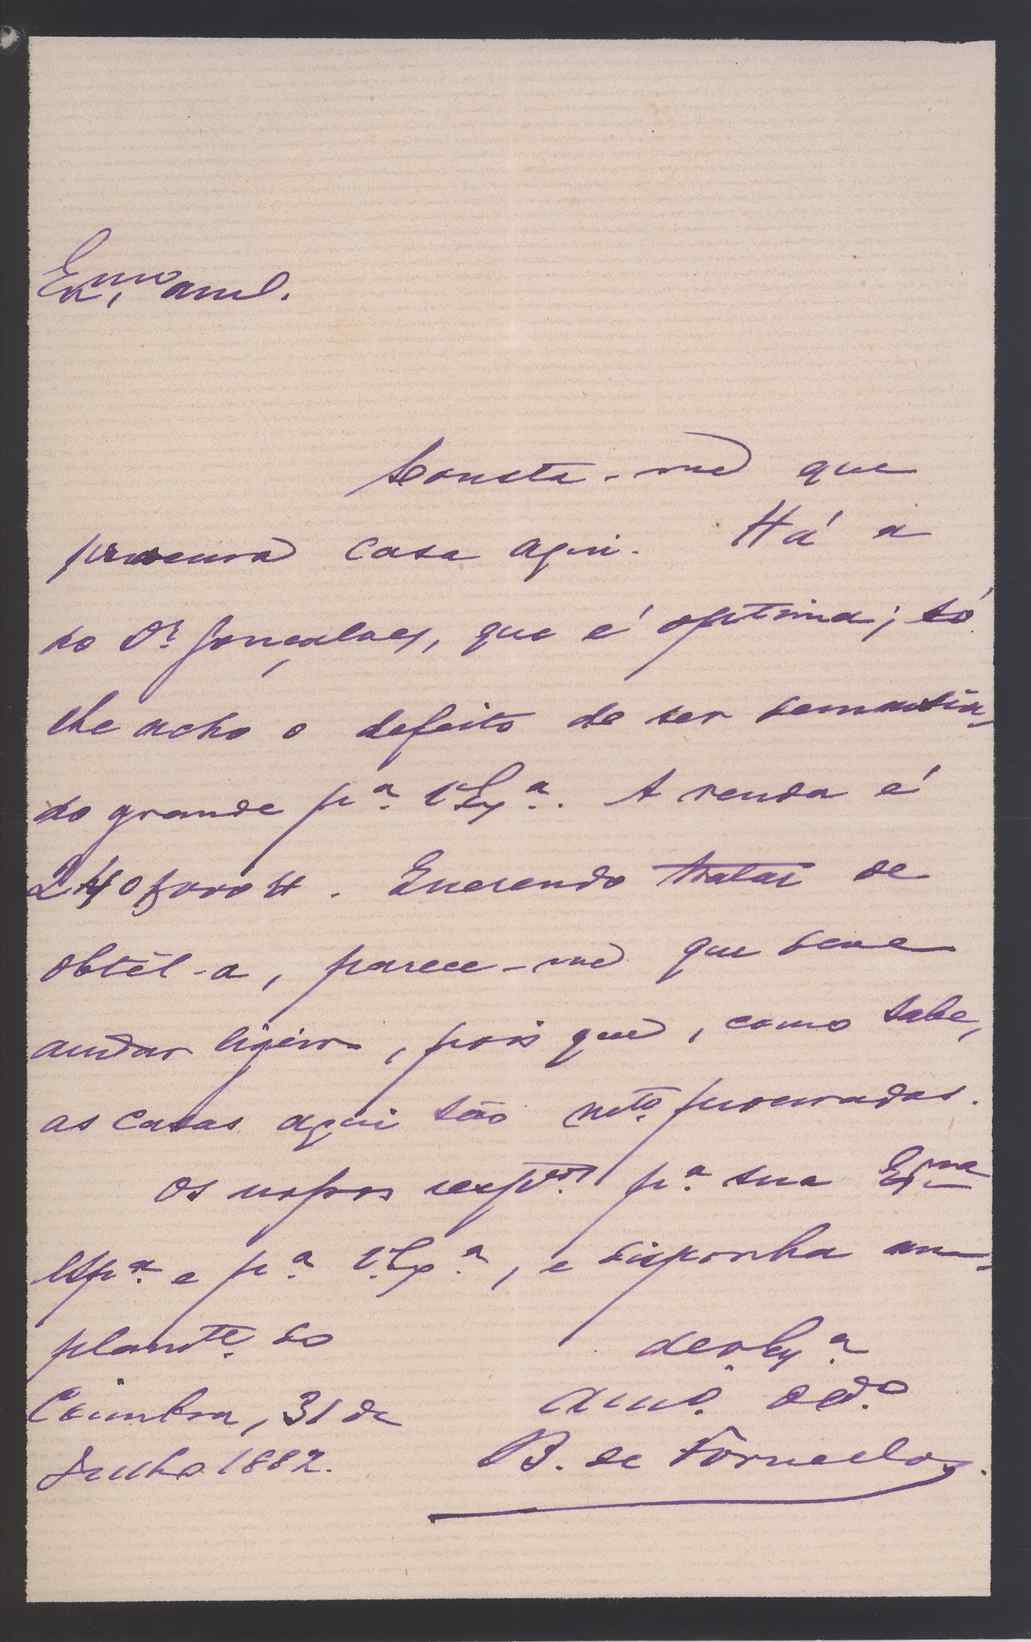 Exmo amº.
Consta-me que
procura casa aqui. Há a
do Dr. Gonçalves, que é optima; só
lhe acho o defeito de ser demasia-
do grande pª. V.Exª. A renda é
240$000 rs. Querendo tratar de
obtêl-a, parece-me que deve
andar ligeiro, pois que, como sabe,
as casas aqui são mtº. procuradas.
Os nossos respтos. pª. sua Exma
espª. e pª. V.Exª, e disponha am-
plamte. do
de V. Exª
Coimbra, 31 de
amº. obdº.
Julho 1882.
B. de Fôrnellos.